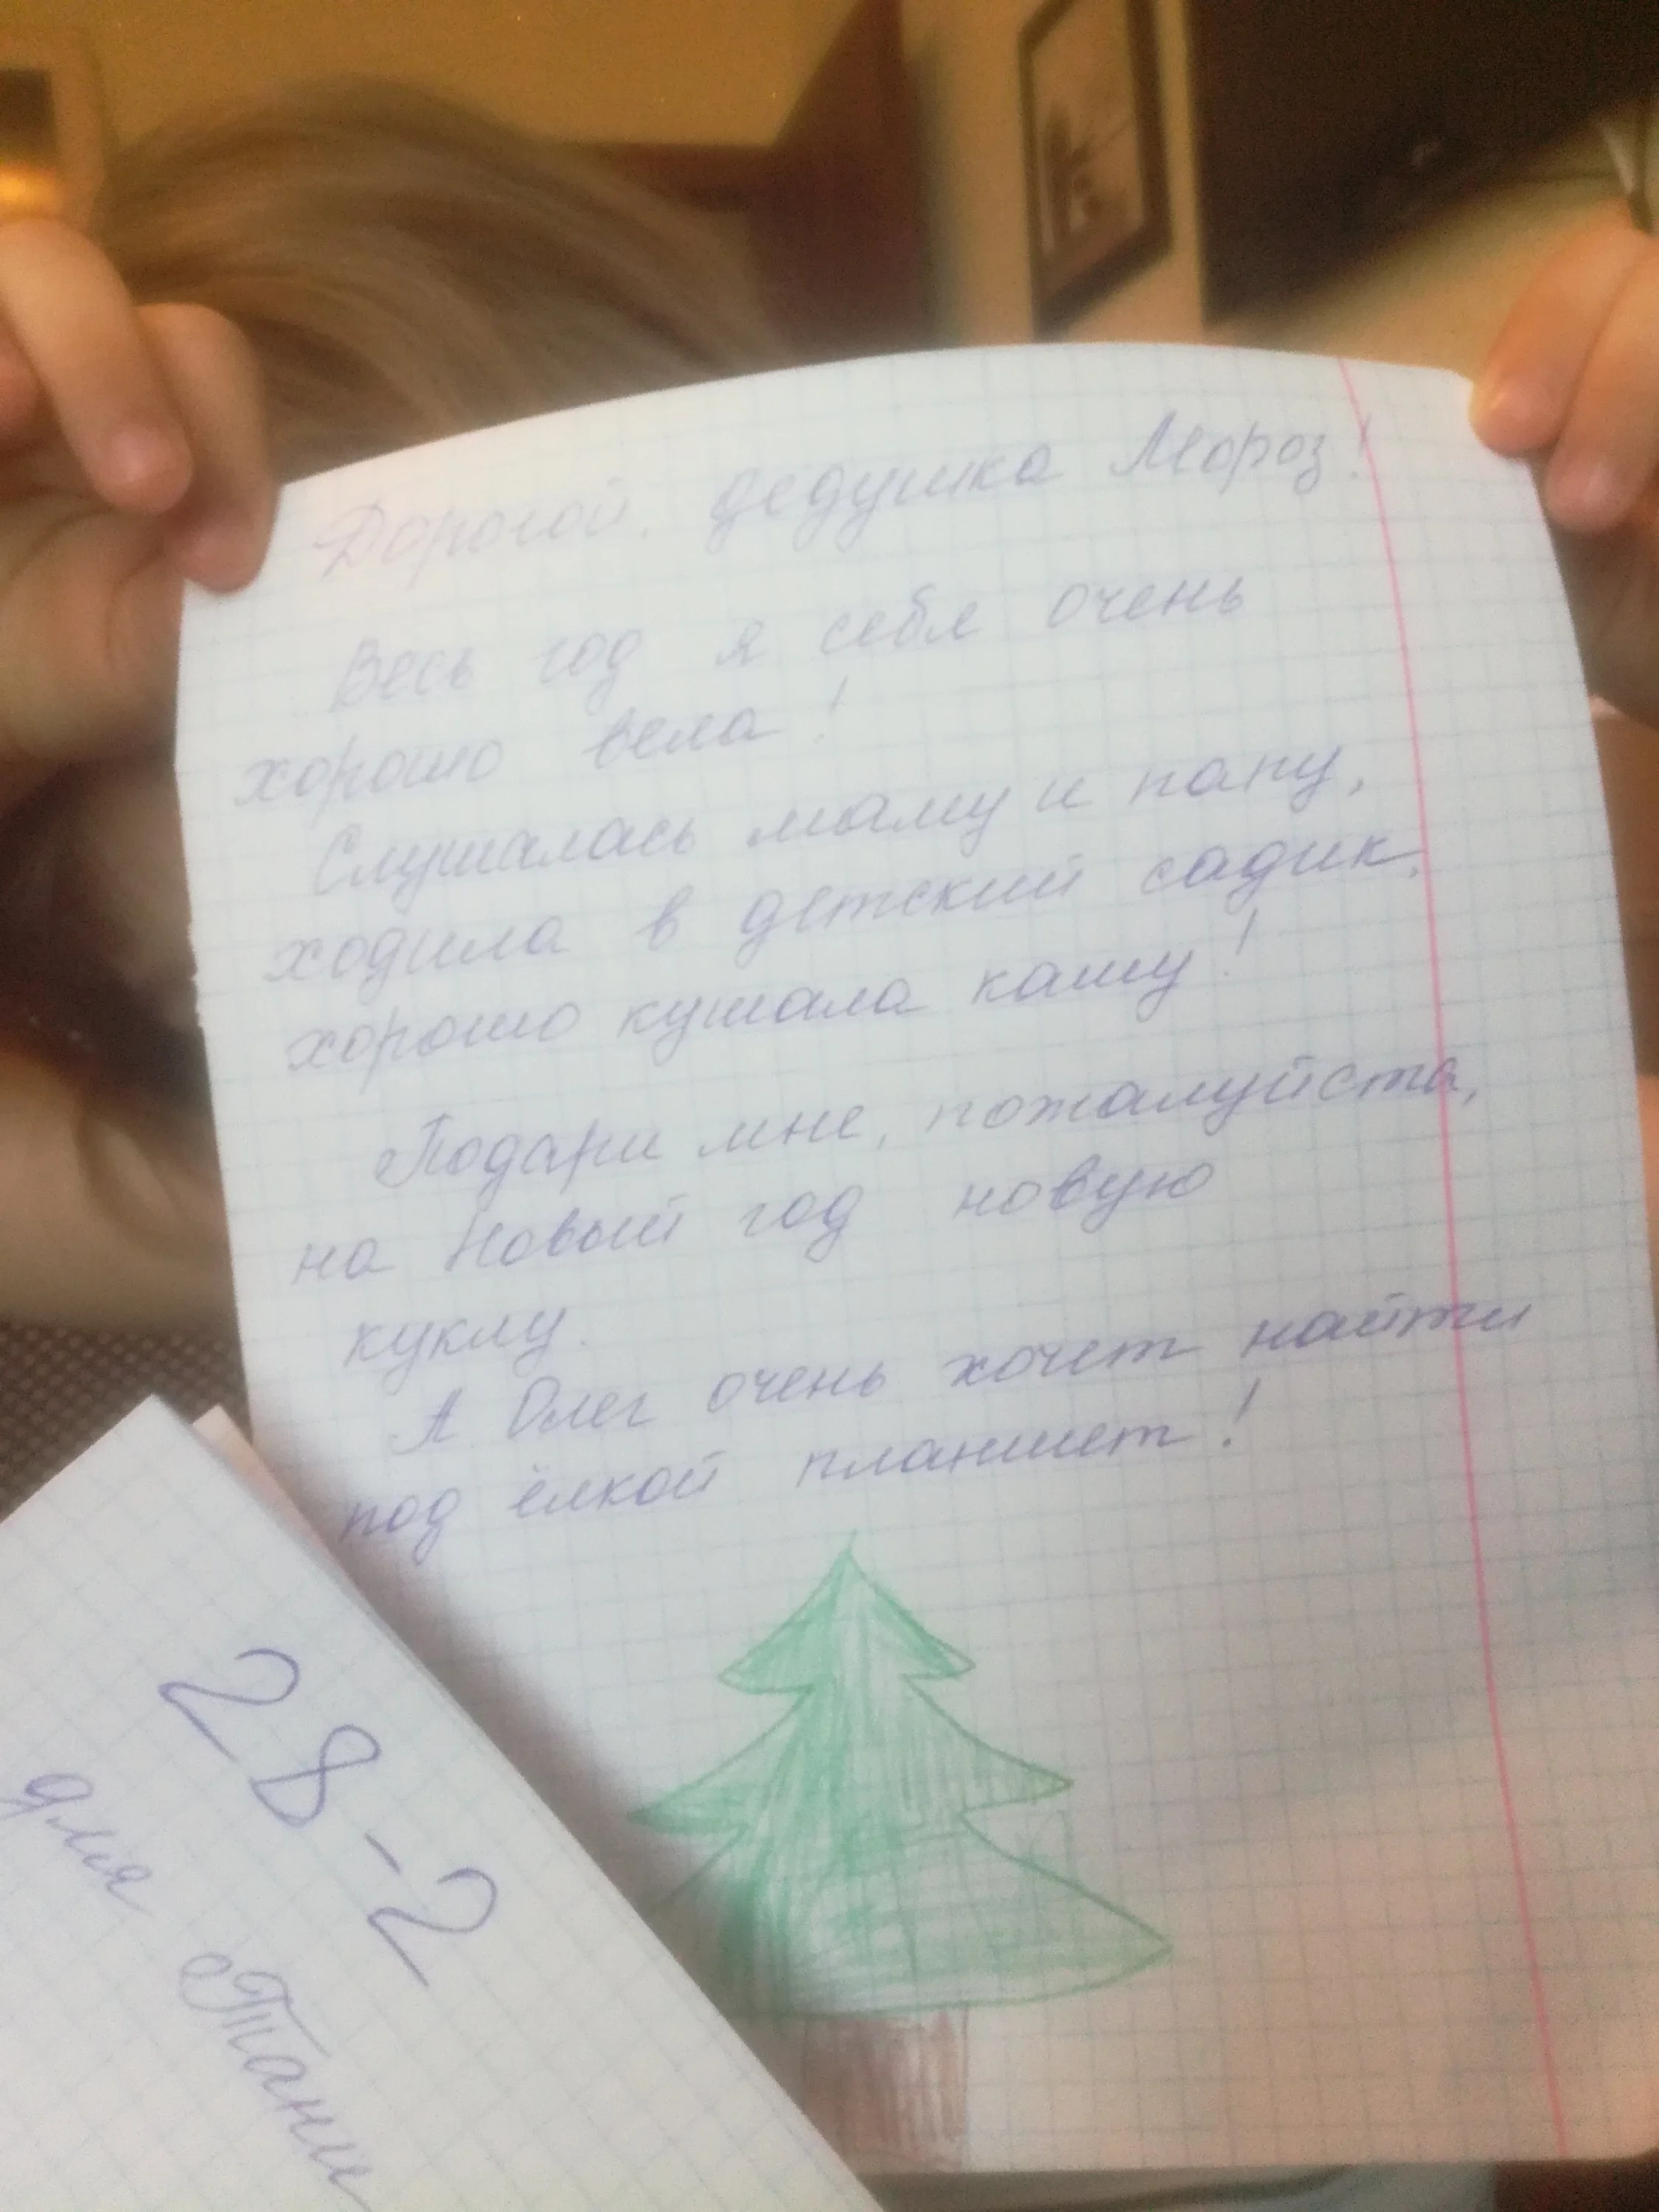 Дорогой дедушка Мороз!
Весь год я себя очень
хорошо вела!
Слушалась маму и папу,
ходила в детский садик,
хорошо кушала кашу!
Подари мне, пожалуйста,
на Новый год новую
куклу.
А Олег очень хочет найти
под ёлкой планшет!
28-2
для Тани